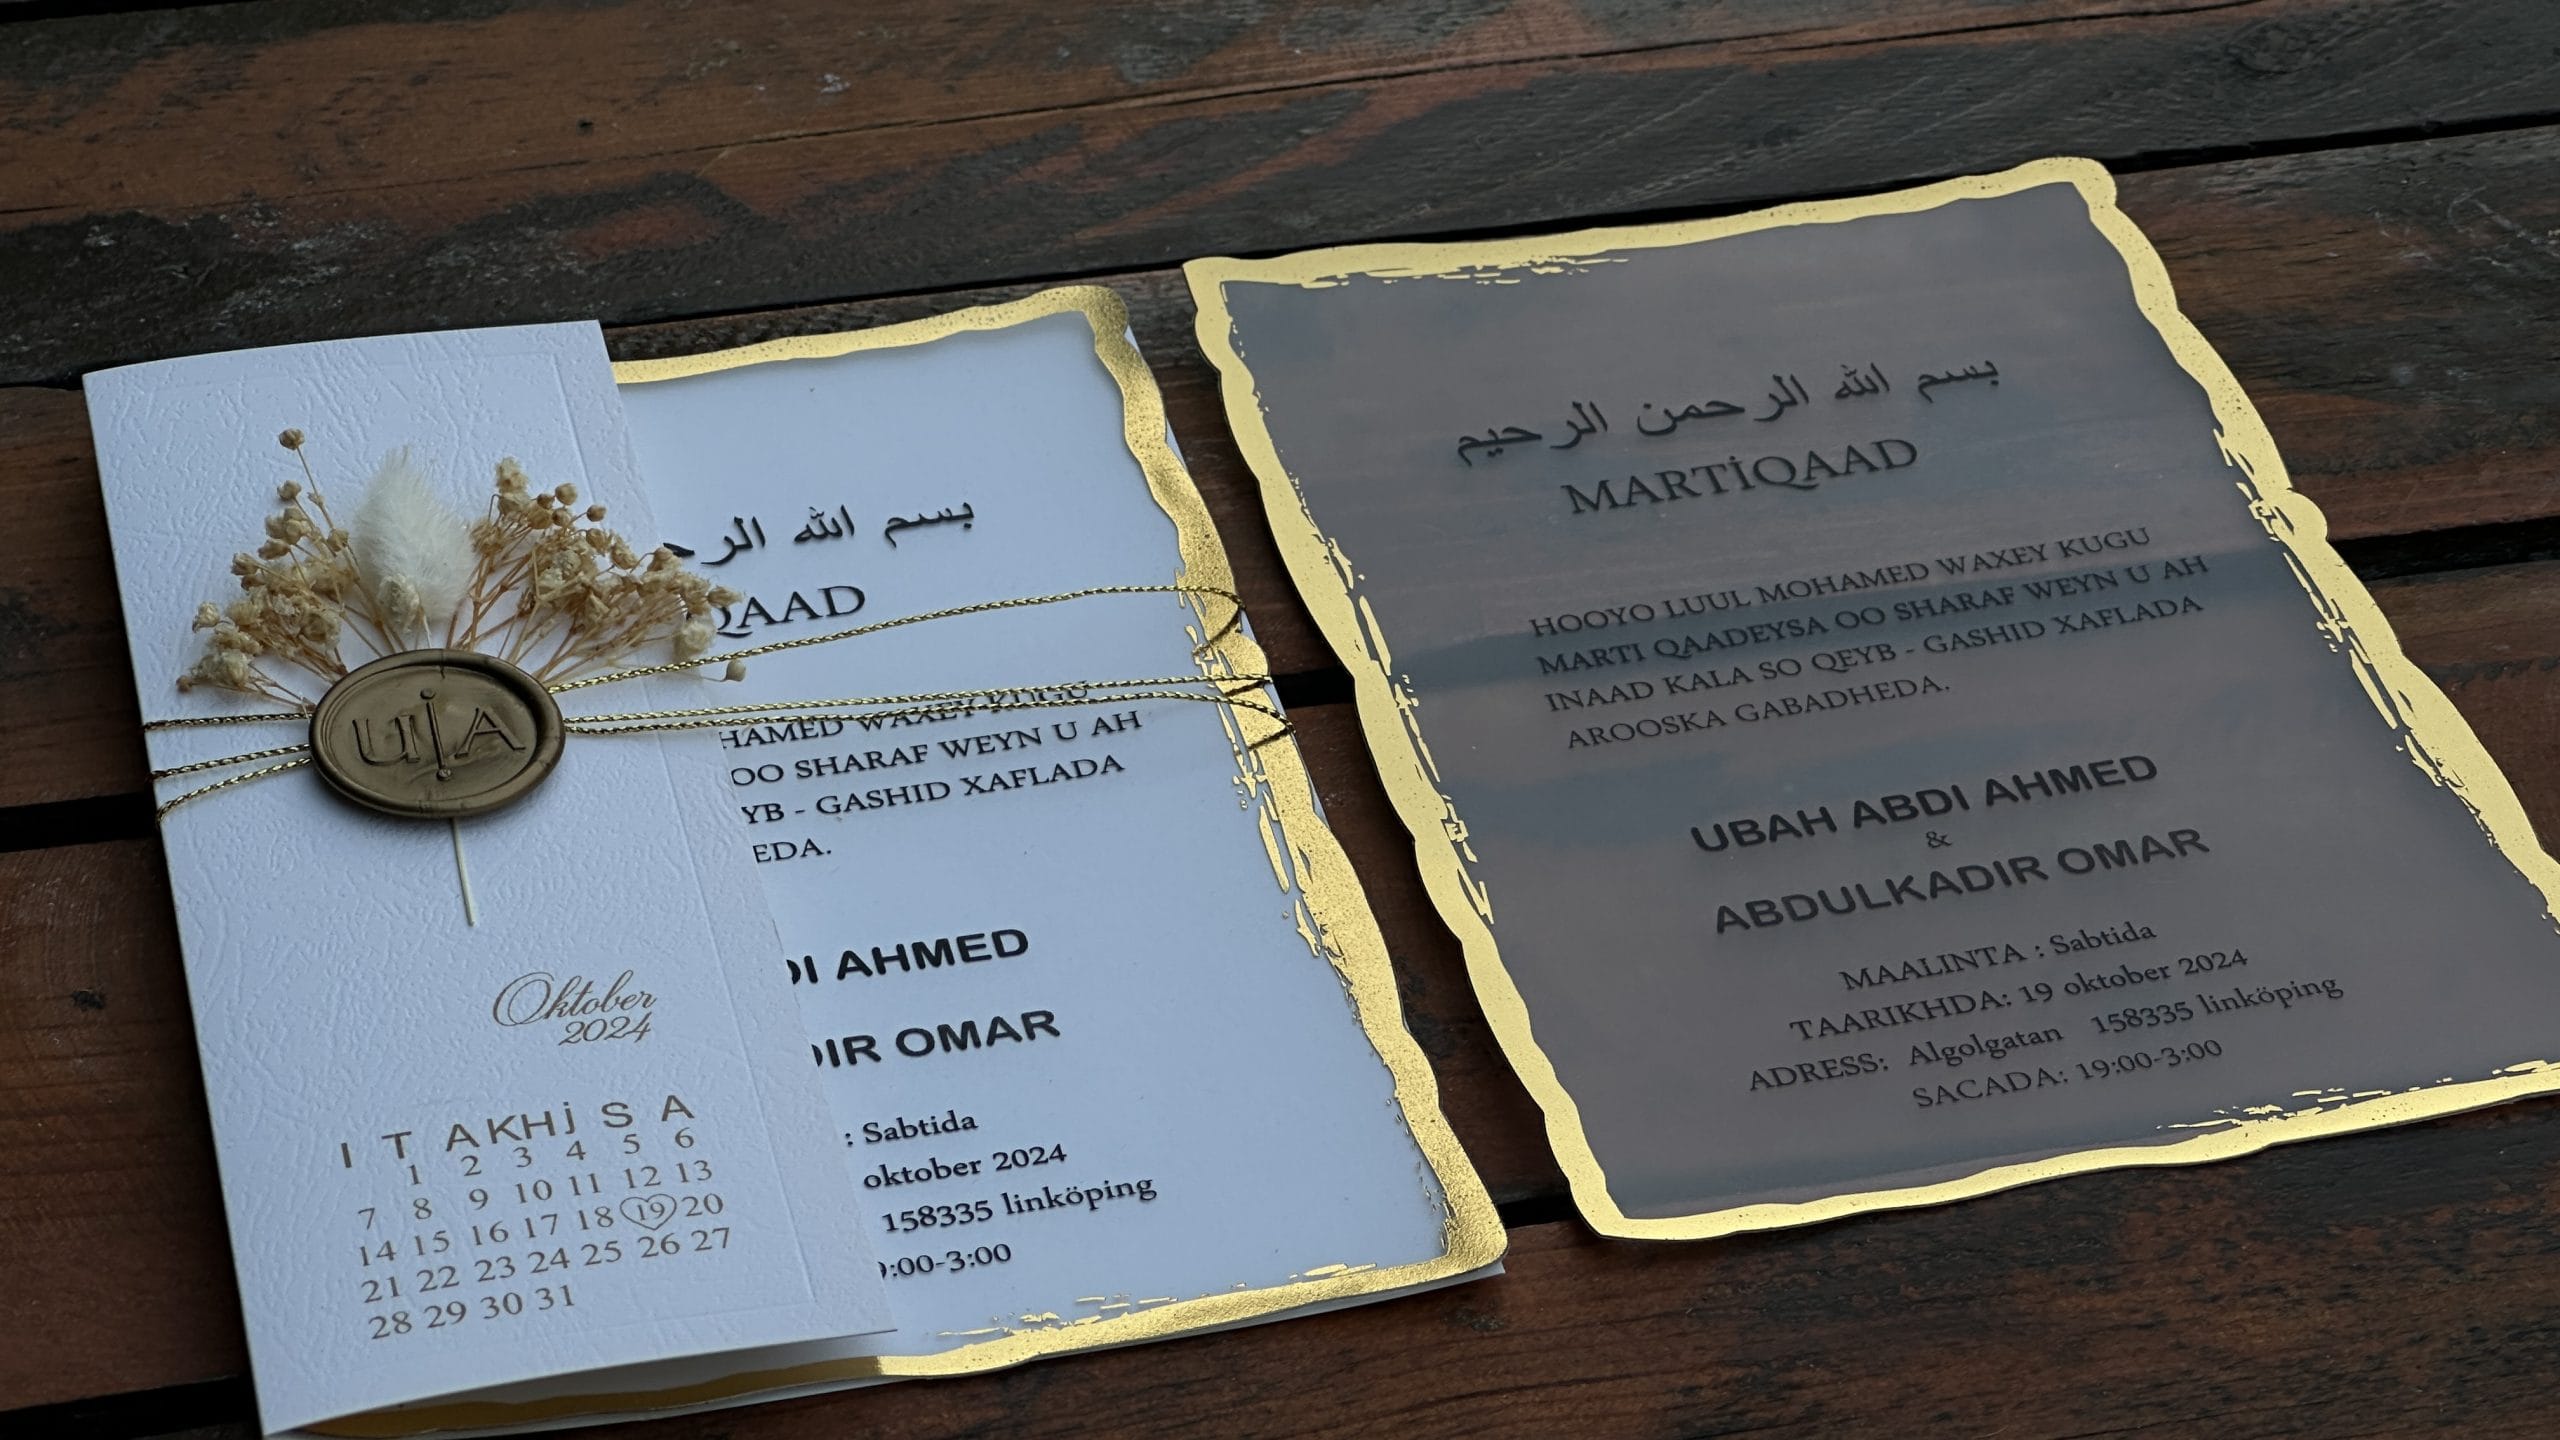 UJA
Oktober
2024
I T A KH J S A
1 2 3 4 5 6
7 8 9 10 11 12 13
14 15 16 17 18 19 20
21 22 23 24 25 26 27
28 29 30 31
بسم الله الرح
QAAD
HAMED WAXEY KUGU
OO SHARAF WEYN U AH
YB - GASHID XAFLADA
EDA.
DI AHMED
DIR OMAR
: Sabtida
oktober 2024
158335 linköping
9:00-3:00
بسم الله الرحمن الرحيم
MARTİQAAD
HOOYO LUUL MOHAMED WAXEY KUGU
MARTI QAADEYSA OO SHARAF WEYN U AH
INAAD KALA SO QEYB - GASHID XAFLADA
AROOSKA GABADHEDA.
UBAH ABDI AHMED
&
ABDULKADIR OMAR
MAALINTA : Sabtida
TAARIKHDA: 19 oktober 2024
ADRESS: Algolgatan 158335 linköping
SACADA: 19:00-3:00